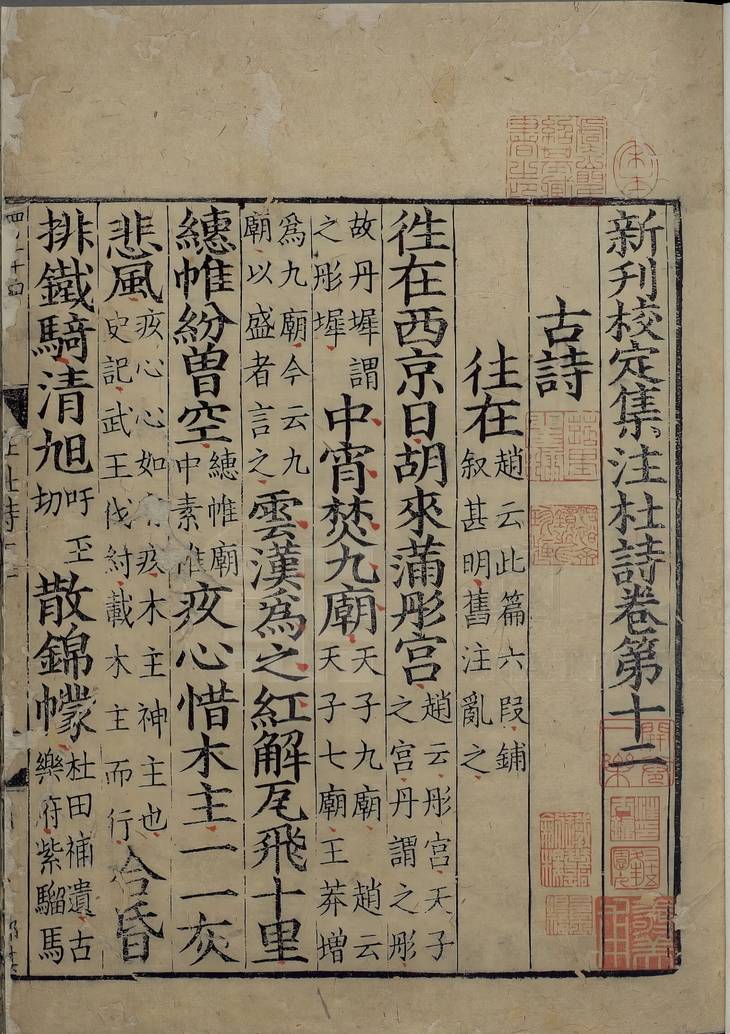 新刊校定集注杜詩卷第十二
古詩
往在趙云此篇六段鋪叙甚明舊注亂之
徃在西京日胡來滿彤宫趙云彤宫天子之宫丹謂之彤
故丹墀謂之彤墀中宵焚九廟天子九廟趙云天子七廟王莽增
為九廟今云九廟以盛者言之雲漢爲之紅解瓦飛十里
繐帷紛曽空繐帷廟中素帷疚心惜木主一一灰
悲風疚心心如有疚木主神主也史記武王伐紂載木主而行合昏
排鐵騎清旭吁玉切散錦幪杜田補遺古樂府紫騮馬